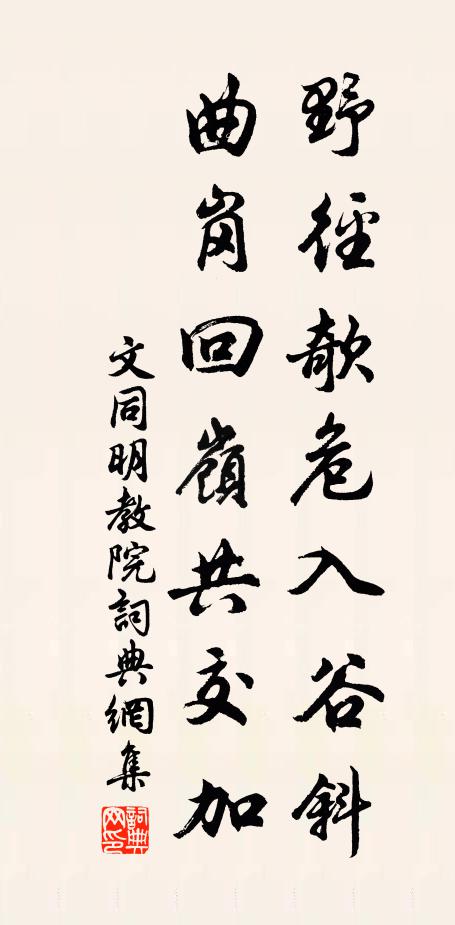 野徑欹危入谷斜
曲崗回嶺共交加
文同明教院詞典網集
詞典網印